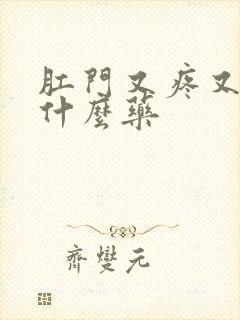 肛門又疼又
什麼藥
齊燮元